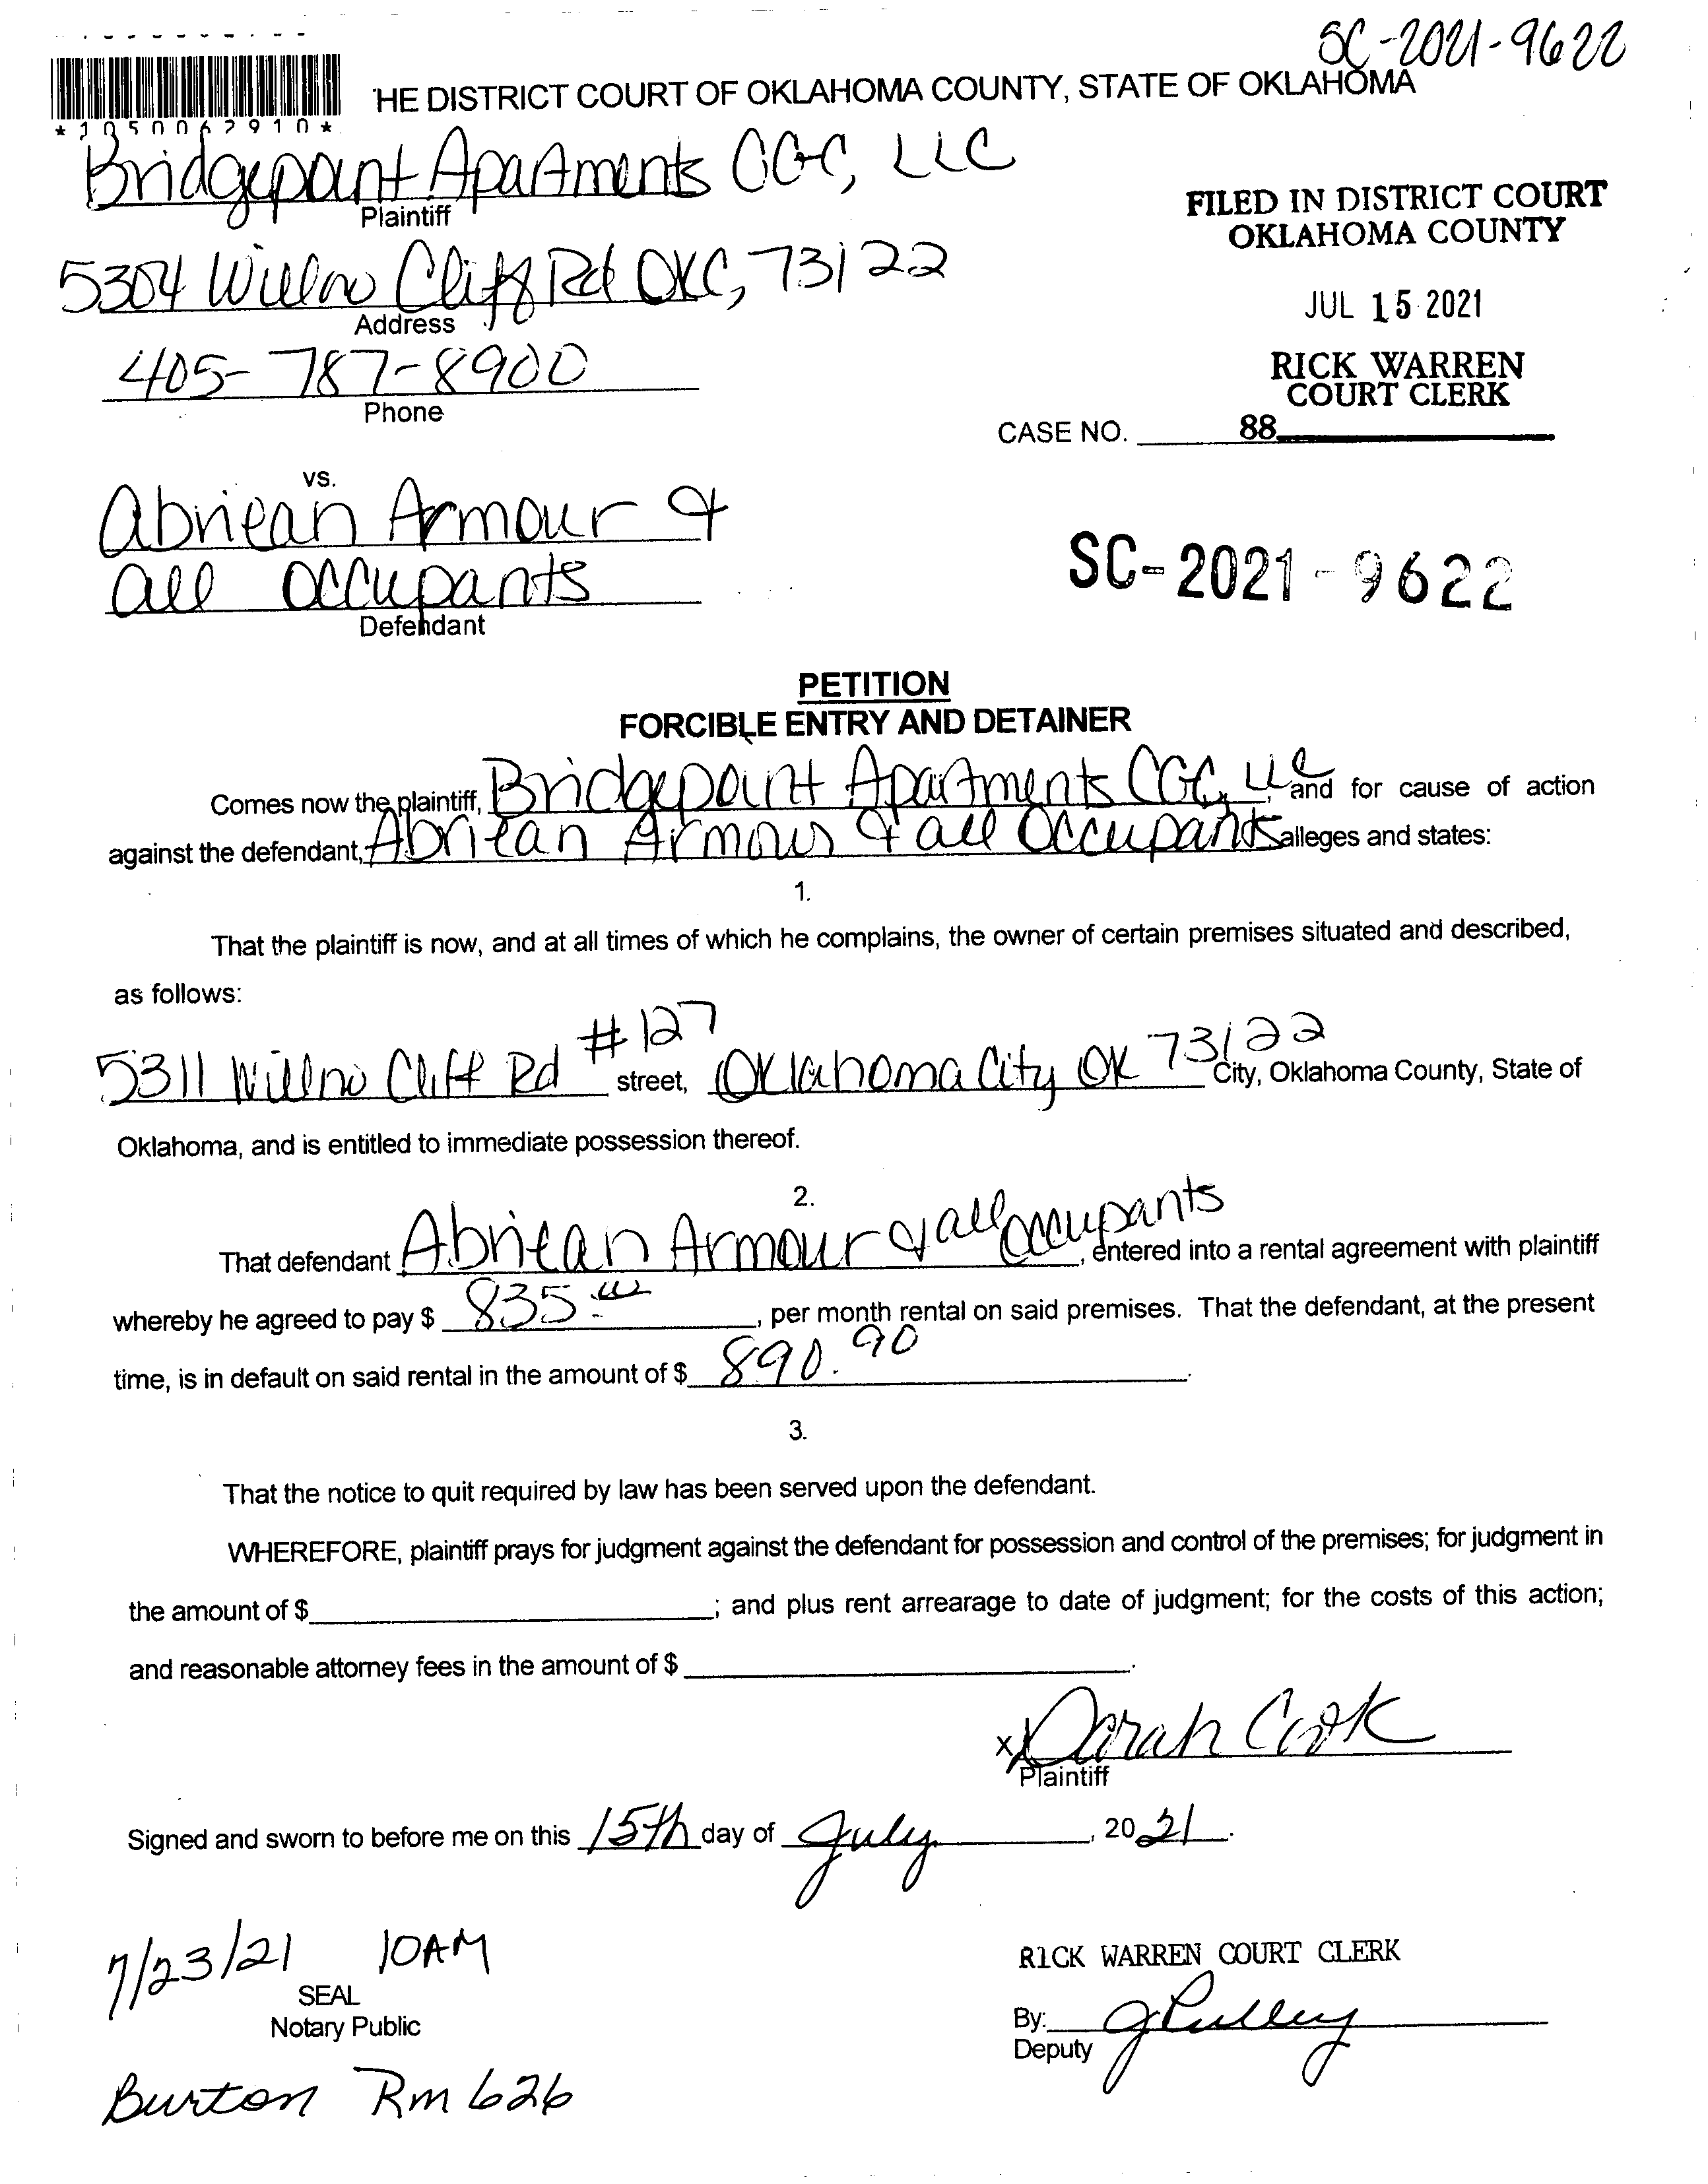 SC-2021-9622
HE DISTRICT COURT OF OKLAHOMA COUNTY, STATE OF OKLAHOMA
*1050062910*
Bridgepoint Apartments CGC, LLC
Plaintiff
FILED IN DISTRICT COURT
OKLAHOMA COUNTY
5304 Willow Cliff Rd OKC, 73122
Address
JUL 15 2021
405-787-8900
Phone
RICK WARREN
COURT CLERK
CASE NO. 88
vs.
Abriean Armour &
all occupants
Defendant
SC-2021-9622
PETITION
FORCIBLE ENTRY AND DETAINER
Comes now the plaintiff, Bridgepoint Apartments CGC, LLC, and for cause of action
against the defendant, Abriean Armour & all Occupants alleges and states:
1.
That the plaintiff is now, and at all times of which he complains, the owner of certain premises situated and described,
as follows:
5311 Willow Cliff Rd #127 street, Oklahoma City OK 73122 City, Oklahoma County, State of
Oklahoma, and is entitled to immediate possession thereof.
2.
That defendant Abriean Armour & all occupants, entered into a rental agreement with plaintiff
whereby he agreed to pay $ 835.00, per month rental on said premises. That the defendant, at the present
time, is in default on said rental in the amount of $ 890.90.
3.
That the notice to quit required by law has been served upon the defendant.
WHEREFORE, plaintiff prays for judgment against the defendant for possession and control of the premises; for judgment in
the amount of $ ; and plus rent arrearage to date of judgment; for the costs of this action;
and reasonable attorney fees in the amount of $ .
x Darah Cook
Plaintiff
Signed and sworn to before me on this 15th day of July, 2021.
7/23/21 10AM
SEAL
Notary Public
RICK WARREN COURT CLERK
By: 
Deputy
Burton Rm 626